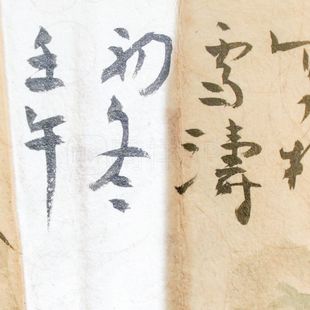 雪濤
初冬
壬午